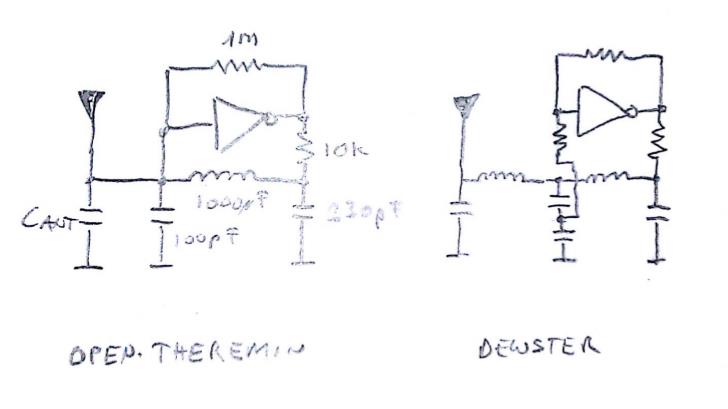 1M
10K
1000pF
CANT
100pF
330pF
OPEN. THEREMIN
DEWSTER